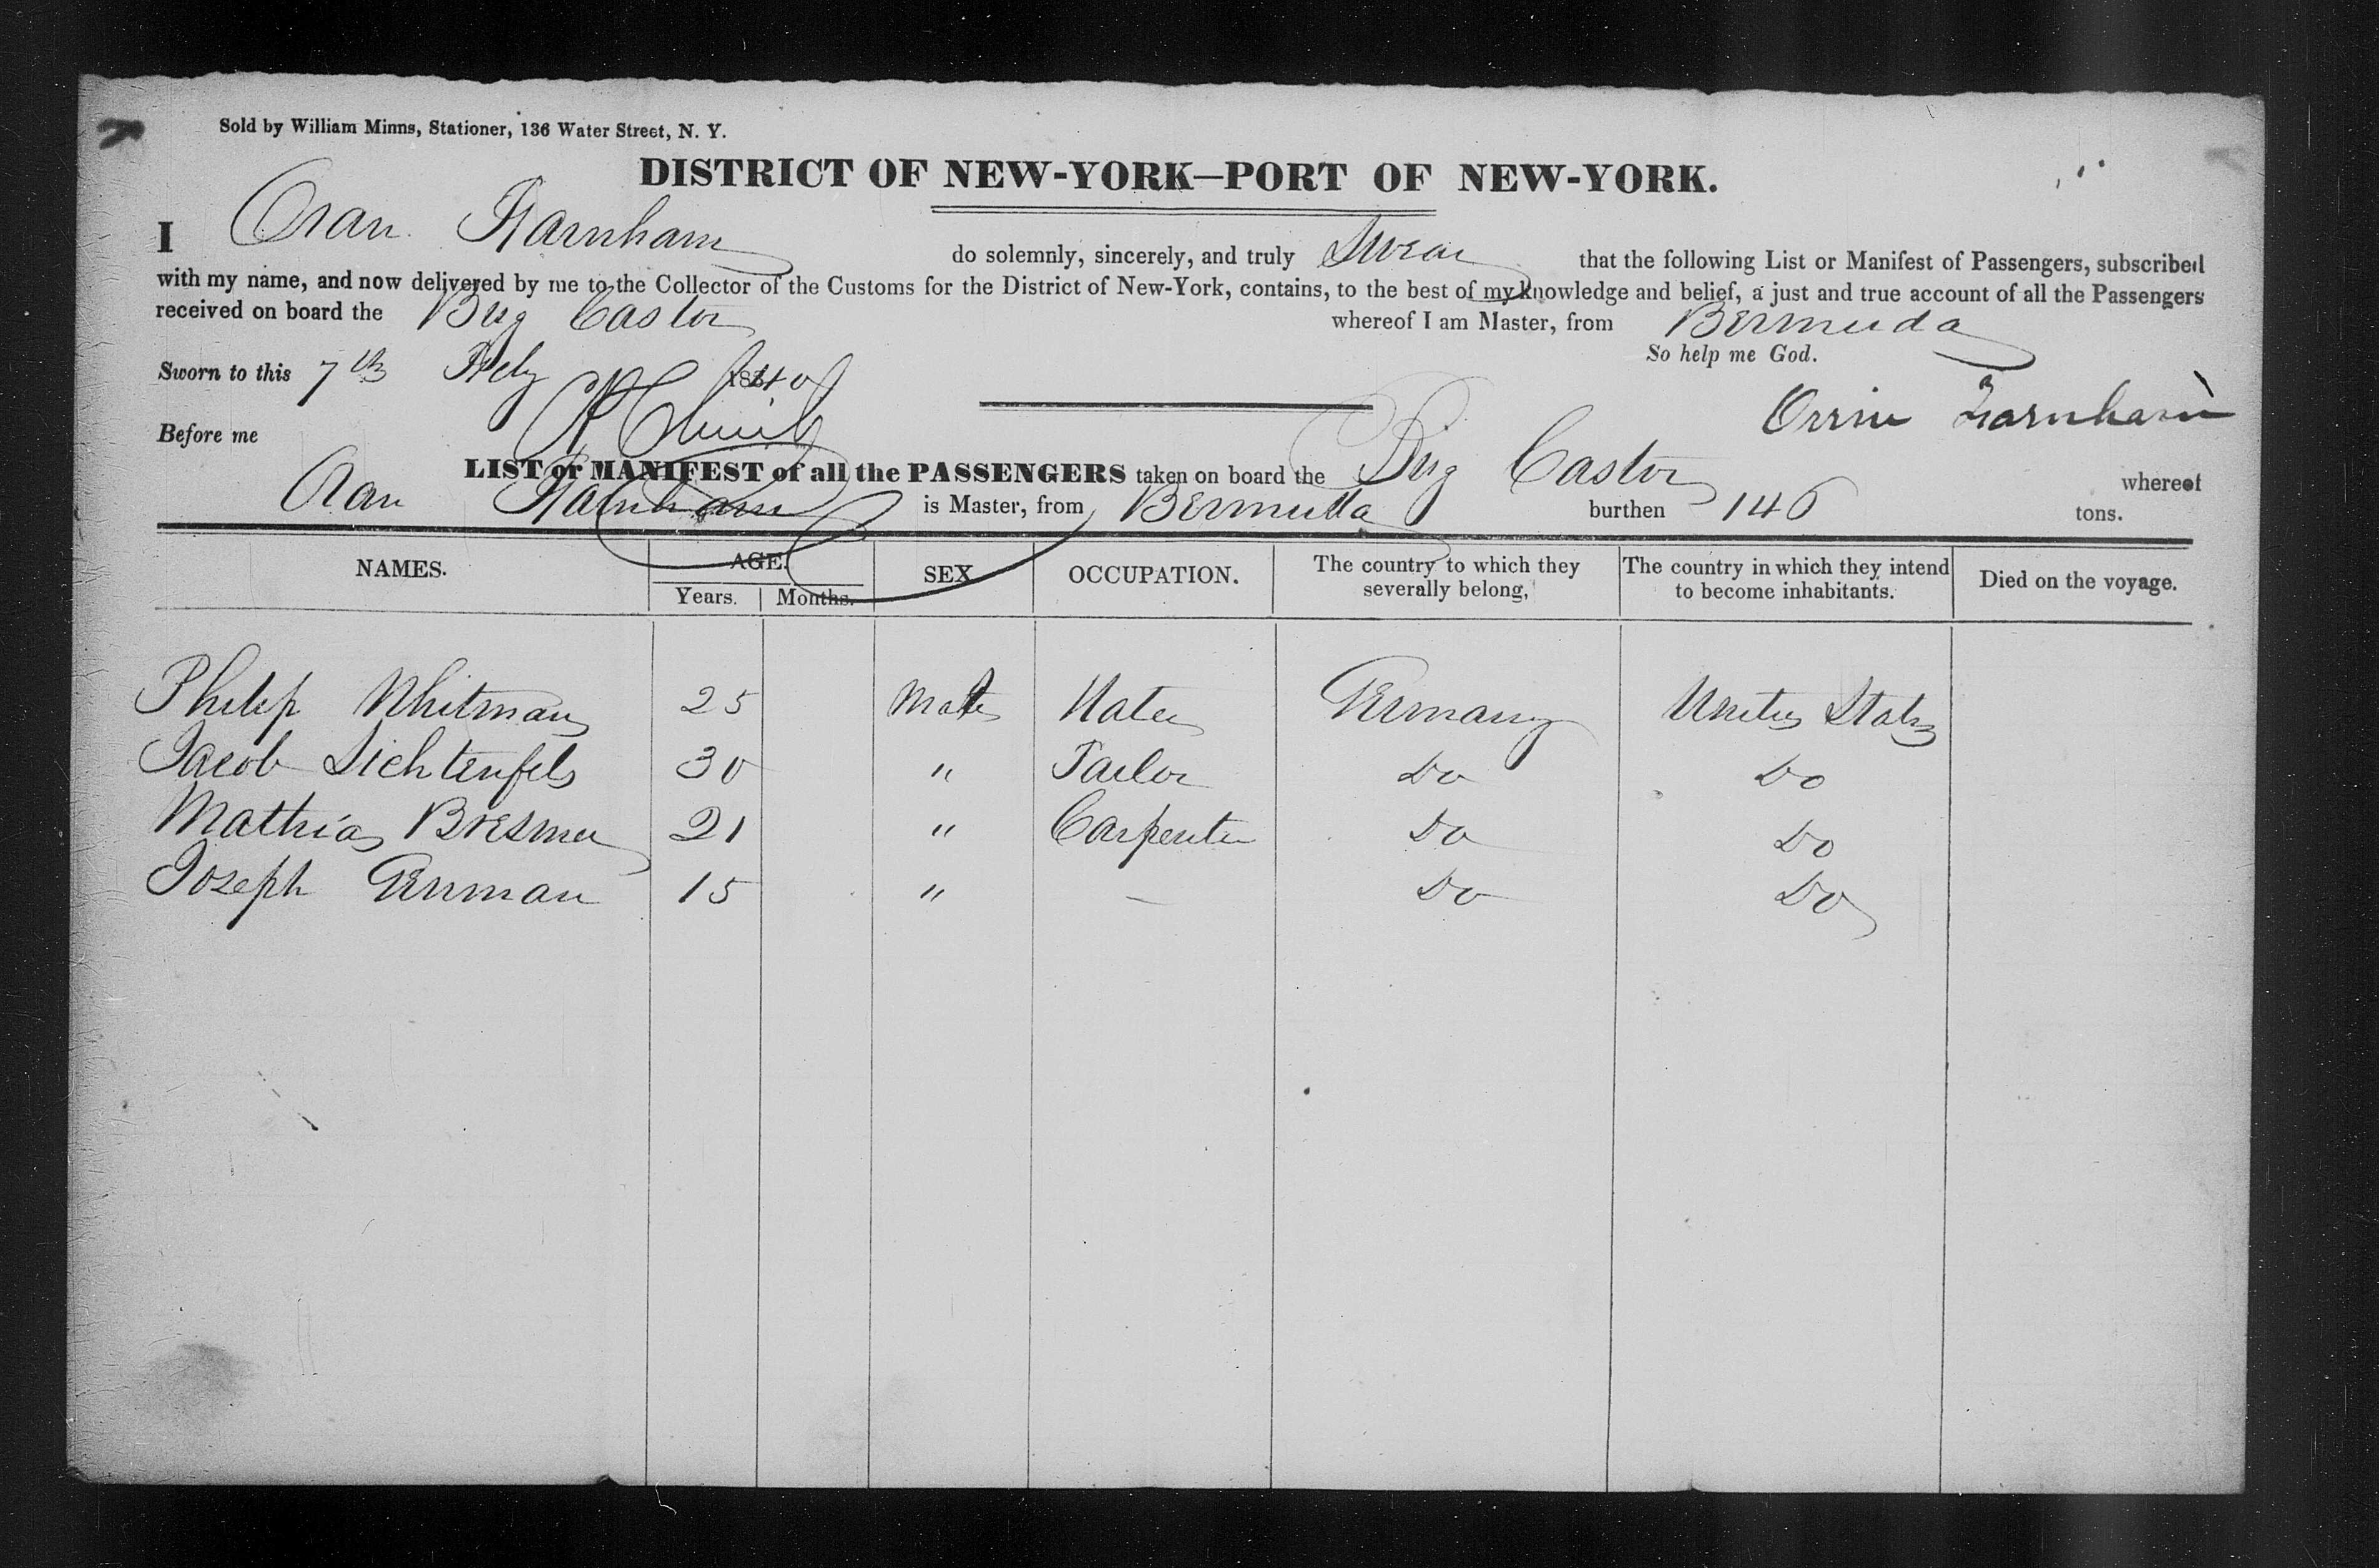 Sold by William Minns, Stationer, 136 Water Street, N. Y.
DISTRICT OF NEW-YORK—PORT OF NEW-YORK.
I Oran Farnham do solemnly, sincerely, and truly Swear that the following List or Manifest of Passengers, subscribed
with my name, and now delivered by me to the Collector of the Customs for the District of New-York, contains, to the best of my knowledge and belief, a just and true account of all the Passengers
received on board the Brig Castor whereof I am Master, from Bermuda
So help me God.
Sworn to this 7th Feby 1840
Orrin Farnham
Before me
LIST or MANIFEST of all the PASSENGERS taken on board the Brig Castor whereof
Oran Farnham is Master, from Bermuda burthen 146 tons.
NAMES. AGE. SEX OCCUPATION. The country to which they severally belong, The country in which they intend to become inhabitants. Died on the voyage.
Years. Months.
Philip Whitman 25 Male Germany United States
Jacob Lichtenfels 30 " Tailor Do Do
Mathias 21 " Carpenter Do Do
Joseph German 15 " — Do Do